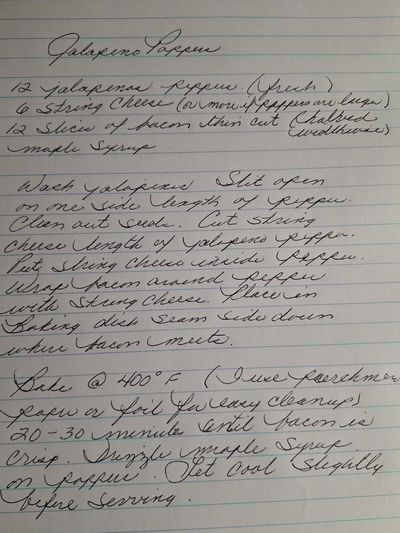 Jalapeno Poppers
12 jalapenos peppers (fresh)
6 String Cheese (or more if peppers are large)
12 Slices of bacon thin cut (halved
widthwise)
maple Syrup
Wash jalapenos Slit open
on one side length of pepper.
Clean out seeds. Cut String
cheese length of jalapeno pepper.
Put String cheese inside Pepper.
Wrap bacon around pepper
with String cheese. Place in
Baking dish seam side down
where bacon meets.
Bake @ 400°F (I use parchment
paper or foil for easy cleanup)
20-30 minutes until bacon is
crisp. Drizzle maple Syrup
on poppers. Let cool slightly
before serving.